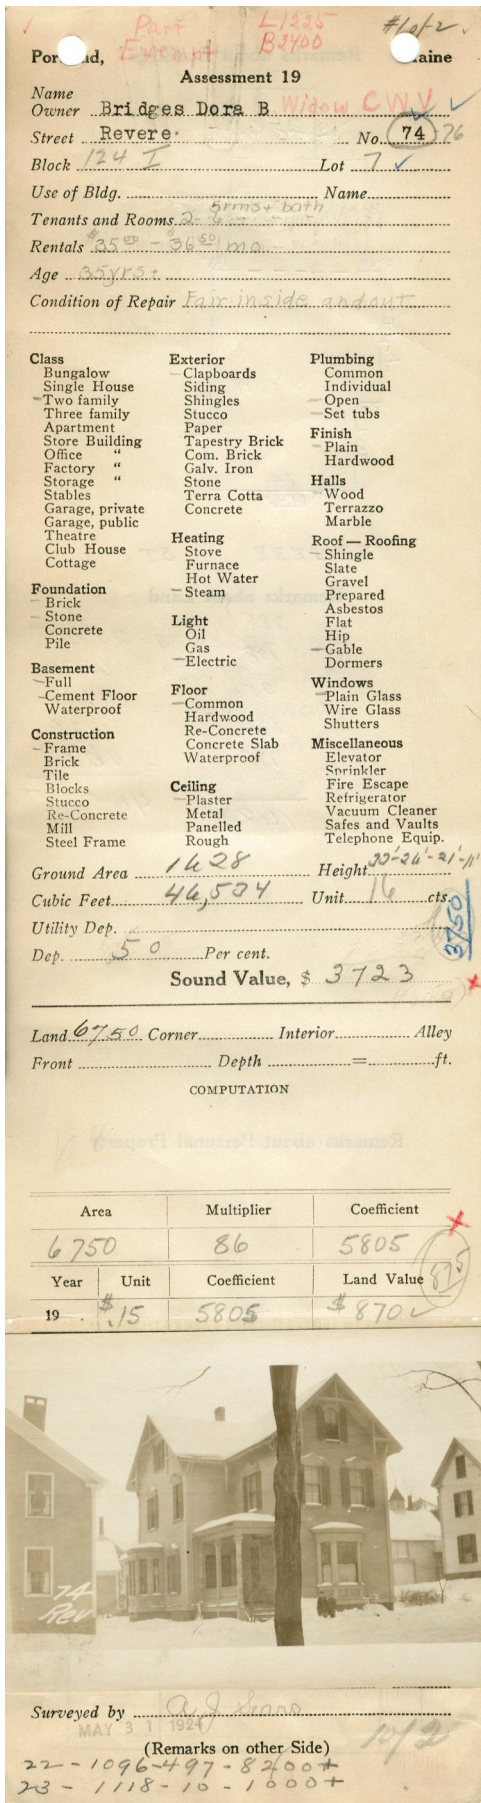 Part
Exempt
L1225
B2400
#1 of 2
Portland, Maine
Assessment 19
Name
Owner Bridges Dora B Widow C W V
Street Revere. No. 74 76
Block 124 I Lot 7
Use of Bldg. Name
5 rms + bath
Tenants and Rooms 2 - 6
Rentals $35 00 - $36 50 / mo
Age 35 yrs +
Condition of Repair Fair inside and out
Class
Bungalow
Single House
Two family
Three family
Apartment
Store Building
Office "
Factory "
Storage "
Stables
Garage, private
Garage, public
Theatre
Club House
Cottage
Foundation
Brick
Stone
Concrete
Pile
Basement
Full
Cement Floor
Waterproof
Construction
Frame
Brick
Tile
Blocks
Stucco
Re-Concrete
Mill
Steel Frame
Exterior
Clapboards
Siding
Shingles
Stucco
Paper
Tapestry Brick
Com. Brick
Galv. Iron
Stone
Terra Cotta
Concrete
Heating
Stove
Furnace
Hot Water
Steam
Light
Oil
Gas
Electric
Floor
Common
Hardwood
Re-Concrete
Concrete Slab
Waterproof
Ceiling
Plaster
Metal
Panelled
Rough
Plumbing
Common
Individual
Open
Set tubs
Finish
Plain
Hardwood
Halls
Wood
Terrazzo
Marble
Roof — Roofing
Shingle
Slate
Gravel
Prepared
Asbestos
Flat
Hip
Gable
Dormers
Windows
Plain Glass
Wire Glass
Shutters
Miscellaneous
Elevator
Sprinkler
Fire Escape
Refrigerator
Vacuum Cleaner
Safes and Vaults
Telephone Equip.
Ground Area 1628 Height
Cubic Feet 46,534 Unit 16 cts.
3750
Utility Dep.
Dep. 50 Per cent.
Sound Value, $ 3723
Land 6750 Corner Interior Alley
Front Depth = ft.
COMPUTATION
Area Multiplier Coefficient
6750 86 5805
875
Year Unit Coefficient Land Value
19 $.15 5805 $870
74
Rev
Surveyed by A J Sears
MAY 31 1924
(Remarks on other Side)
22 - 1096-497 - 8200+
23 - 1118 - 10 - 1000+